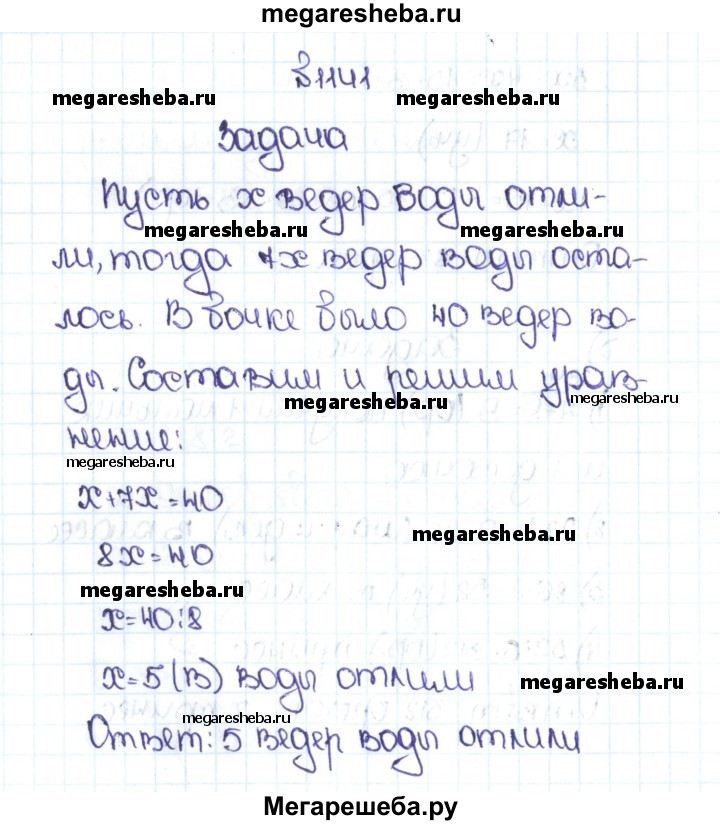 megaresheba.ru
№1141
megaresheba.ru megaresheba.ru
Задача
Пусть x ведер воды отли-
megaresheba.ru megaresheba.ru
ли, тогда 7x ведер воды оста-
лось. В бочке было 40 ведер во-
ды. Составим и решим урав-
megaresheba.ru megaresheba.ru
нение:
megaresheba.ru
x+7x=40
megaresheba.ru
8x=40
megaresheba.ru
x=40:8
x=5 (в) воды отлили
megaresheba.ru
megaresheba.ru
Ответ: 5 ведер воды отлили
Мегарешеба.ру